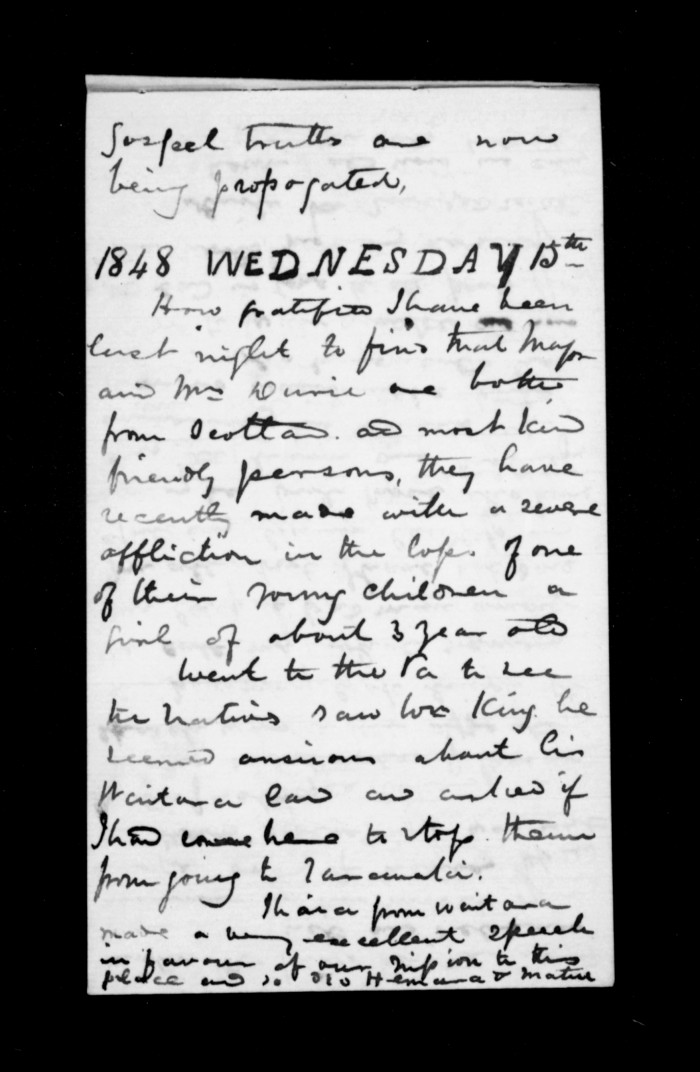 Gospel truths are now
being propogated,
1848 WEDNESDAY 15th
How I have been
last night to find that Major
and Mrs Durie are both
from Scotland. and most kind
friendly persons, they have
recently made with a severe
affliction in the loss. of one
of their young children a
girl of about 3 year old
Went to the Pa to see
the Natives saw Wm King he
seemed ansious about his
Waitara land and asked if
I had come here to stop them
from going to Taranaki.
Ihaia from waitara
made a very excellent speech
in favour of our mission to this
place and so did &